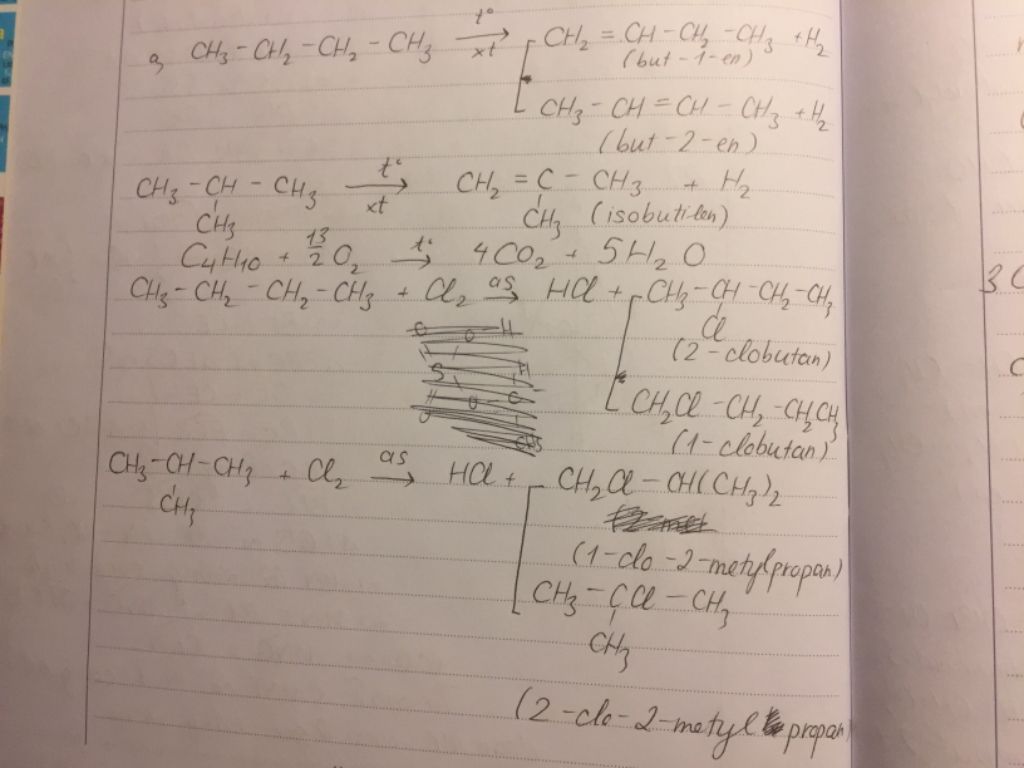 a, CH3 - CH2 - CH2 - CH3 —t°/xt→ [ CH2 = CH - CH2 - CH3 + H2
(but - 1 - en)
CH3 - CH = CH - CH3 + H2
(but - 2 - en)
CH3 - CH - CH3 —t°/xt→ CH2 = C - CH3 + H2
CH3 CH3 (isobutilen)
C4H10 + 13/2 O2 —t°→ 4CO2 + 5H2O
CH3 - CH2 - CH2 - CH3 + Cl2 —as→ HCl + [ CH3 - CH - CH2 - CH3
Cl
(2 - clobutan)
CH2Cl - CH2 - CH2CH3
(1 - clobutan)
CH3 - CH - CH3 + Cl2 —as→ HCl + [ CH2Cl - CH(CH3)2
CH3
(1 - clo - 2 - metylpropan)
CH3 - CCl - CH3
CH3
(2 - clo - 2 - metyl propan)
3